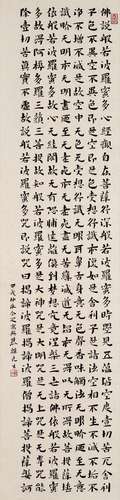 佛說般若波羅蜜多心經觀自在菩薩行深般若波羅蜜多時照見五蘊皆空度一切苦厄舍利
子色不異空空不異色色即是空空即是色受想行識亦復如是舍利子是諸法空相不生不滅不垢不
淨不增不減是故空中無色無受想行識無眼耳鼻舌身意無色聲香味觸法無眼界乃至無意
識界無無明亦無無明盡乃至無老死亦無老死盡無苦集滅道無智亦無得以無所得故菩提薩
埵依般若波羅蜜多故心無罣礙無罣礙故無有恐怖遠離顛倒夢想究竟涅槃三世諸佛依般若波羅蜜多
故得阿耨多羅三藐三菩提故知般若波羅蜜多是大神咒是大明咒是無上咒是無等等咒能
除一切苦真實不虛故說般若波羅蜜多咒即說咒曰揭諦揭諦波羅揭諦波羅僧揭諦菩提薩婆訶